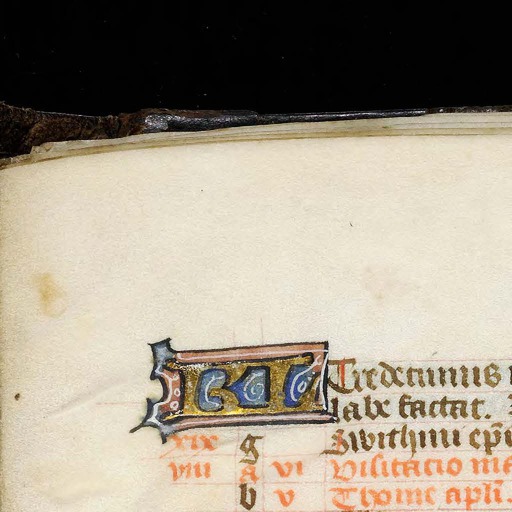 KL Tredecimus
labe factat.
xix g Swithini epi
viii A vi Visitacio
b v Thome apli.